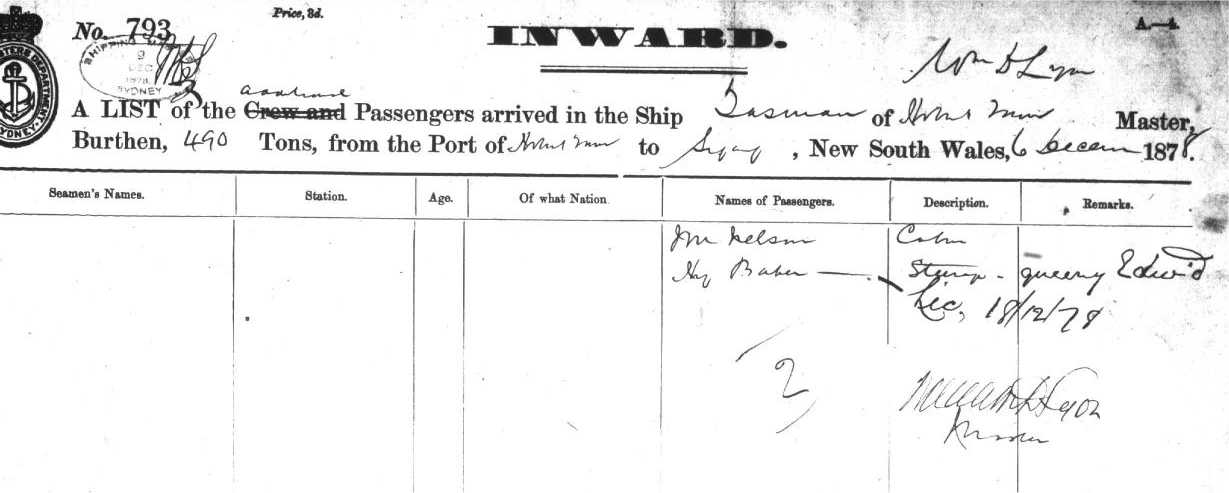 Price, 3d.
No. 793
INWARD.
A.—4.
SHIPPING
9
DEC
1878
SYDNEY
Wm D Lyon
additional
A LIST of the Crew and Passengers arrived in the Ship Tasman of Hobart Town Master,
Burthen, 490 Tons, from the Port of Hobart Town to Sydney, New South Wales, 6 Decem 1878.
Seamen's Names. Station. Age. Of what Nation. Names of Passengers. Description. Remarks.
Jno Nelson Cabin
Hy Baker Steerage - query Edwd
Lic, 18/12/78
2
William D Lyon
Master